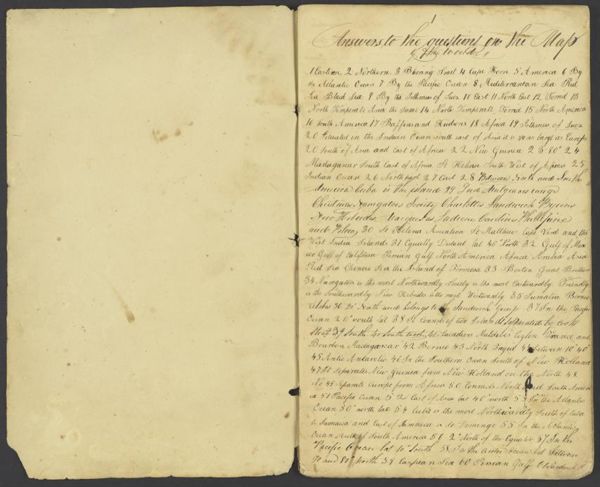 Answers to the questions on the Map
of the World
1 Eastern 2 Northern 3 Bhering Strait 4 Cape Horn 5 America 6 By
the Atlantic Ocean 7 By the Pacific Ocean 8 Mediterranean Sea Red
Sea Black Sea 9 By the Isthmus of Suez 11 East 11 North East 12 Torrid 13
North Temperate Arca the same 14 North Temperate Torrid 15 North America
16 South America 17 Baffins and Hudsons 18 Africa 19 Isthmus of Suez
20 Situated in the Indian Ocean south east of Asia it is as large as Europe
20 South of Asia and East of Africa 22 New Guinea 23 80° 24
Madagascar South East of Africa St Helena South West of Africa 25
Indian Ocean 26 North east 27 East 28 Between North and South
America Cuba is the island 29 and Mulgraves range
Caroline Navigators Society Charlotte Sandwich
New Hebrides Marquesas Ladrone Caroline Phillipine
and Pelew 30 St Helena Ascention St Matthew Cape Verd and the
West India Islands 31 Equally Distant Lat 40 North 32 Gulf of Mex
ico Gulf of California Persian Gulf North America Africa Arabia Asia
Red Sea Chinese Sea the Island of Formosa 33 Boston Great Britain
34 Navigators is the most Northwardly Society is the most Eastwardly Friendly
is the Southwardly New Hebrides is the most Westwardly 35 Sumatra Borneo
Celebes 36 20° North and belongs to the Sandwich Group 37 In the Pacific
Ocean 20° south lat 38 It consists of two Islands Situated by Cook
Strait 39 South 40 South 41 Ceylon and
Bourbon Madagascar 42 Borneo 43 North Torrid 44 Between 10° 40°
45 Arctic Antarctic 46 In the Southern Ocean South of New Holland
47 It Separates New Guinea from New Holland on the North 48
49 Separate Europe from Africa 50 Connects North and South America
51 Pacific Ocean 52 East of Asia lat 40° north 53 In the Atlantic
Ocean 50° north lat 54 Cuba is the most Northwardly South of Cuba
is Jamaica and East of Jamaica is St Domingo 55 In the Atlantic
Ocean South of South America 56 2° North of the Equator 57 In the
Pacific Ocean lat 10° South 58 In the Arctic Ocean lat Between
70 and 80° North 59 Caspian Sea 60 Persian Gulf